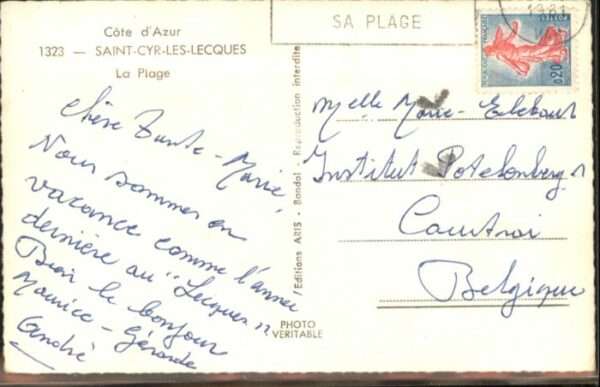 Côte d'Azur
1323 — SAINT-CYR-LES-LECQUES
La Plage
Chère Tante-Marie,
Nous sommes en
vacance comme l'année
dernière au "Lecques"
Bien le bonjour
Maurice - Gérarde
André
Editions ARIS - Bandol - Reproduction interdite
PHOTO
VERITABLE
SA PLAGE
1961
0,20
Melle Marie
Institut Potelenberg
Courtrai
Belgique